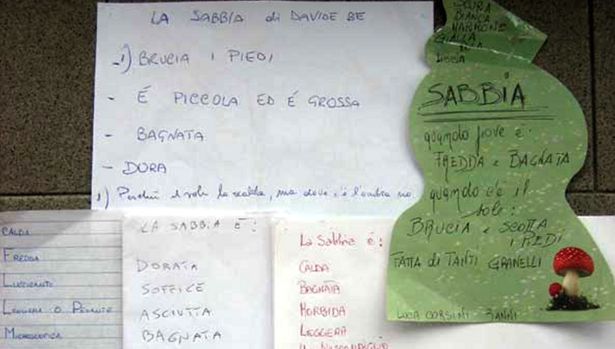 LA SABBIA di DAVIDE BE
1) BRUCIA I PIEDI
- É PICCOLA ED É GROSSA
- BAGNATA
- DURA
1) Perché il sole la scalda, ma dove c'è l'ombra no
SCURA
BIANCA
MARRONE
GIALLA
SABBIA
quando piove è:
FREDDA e BAGNATA
quando c'è il
sole:
BRUCIA e SCOTTA
I PIEDI
FATTA di TANTI GRANELLI
LUCA CORSINI 3 ANNI
CALDA
FREDDA
LUCCICANTE
LEGGERA O PESANTE
MICROSCOPICA
LA SABBIA É:
DORATA
SOFFICE
ASCIUTTA
BAGNATA
La Sabbia é:
CALDA
BAGNATA
MORBIDA
LEGGERA